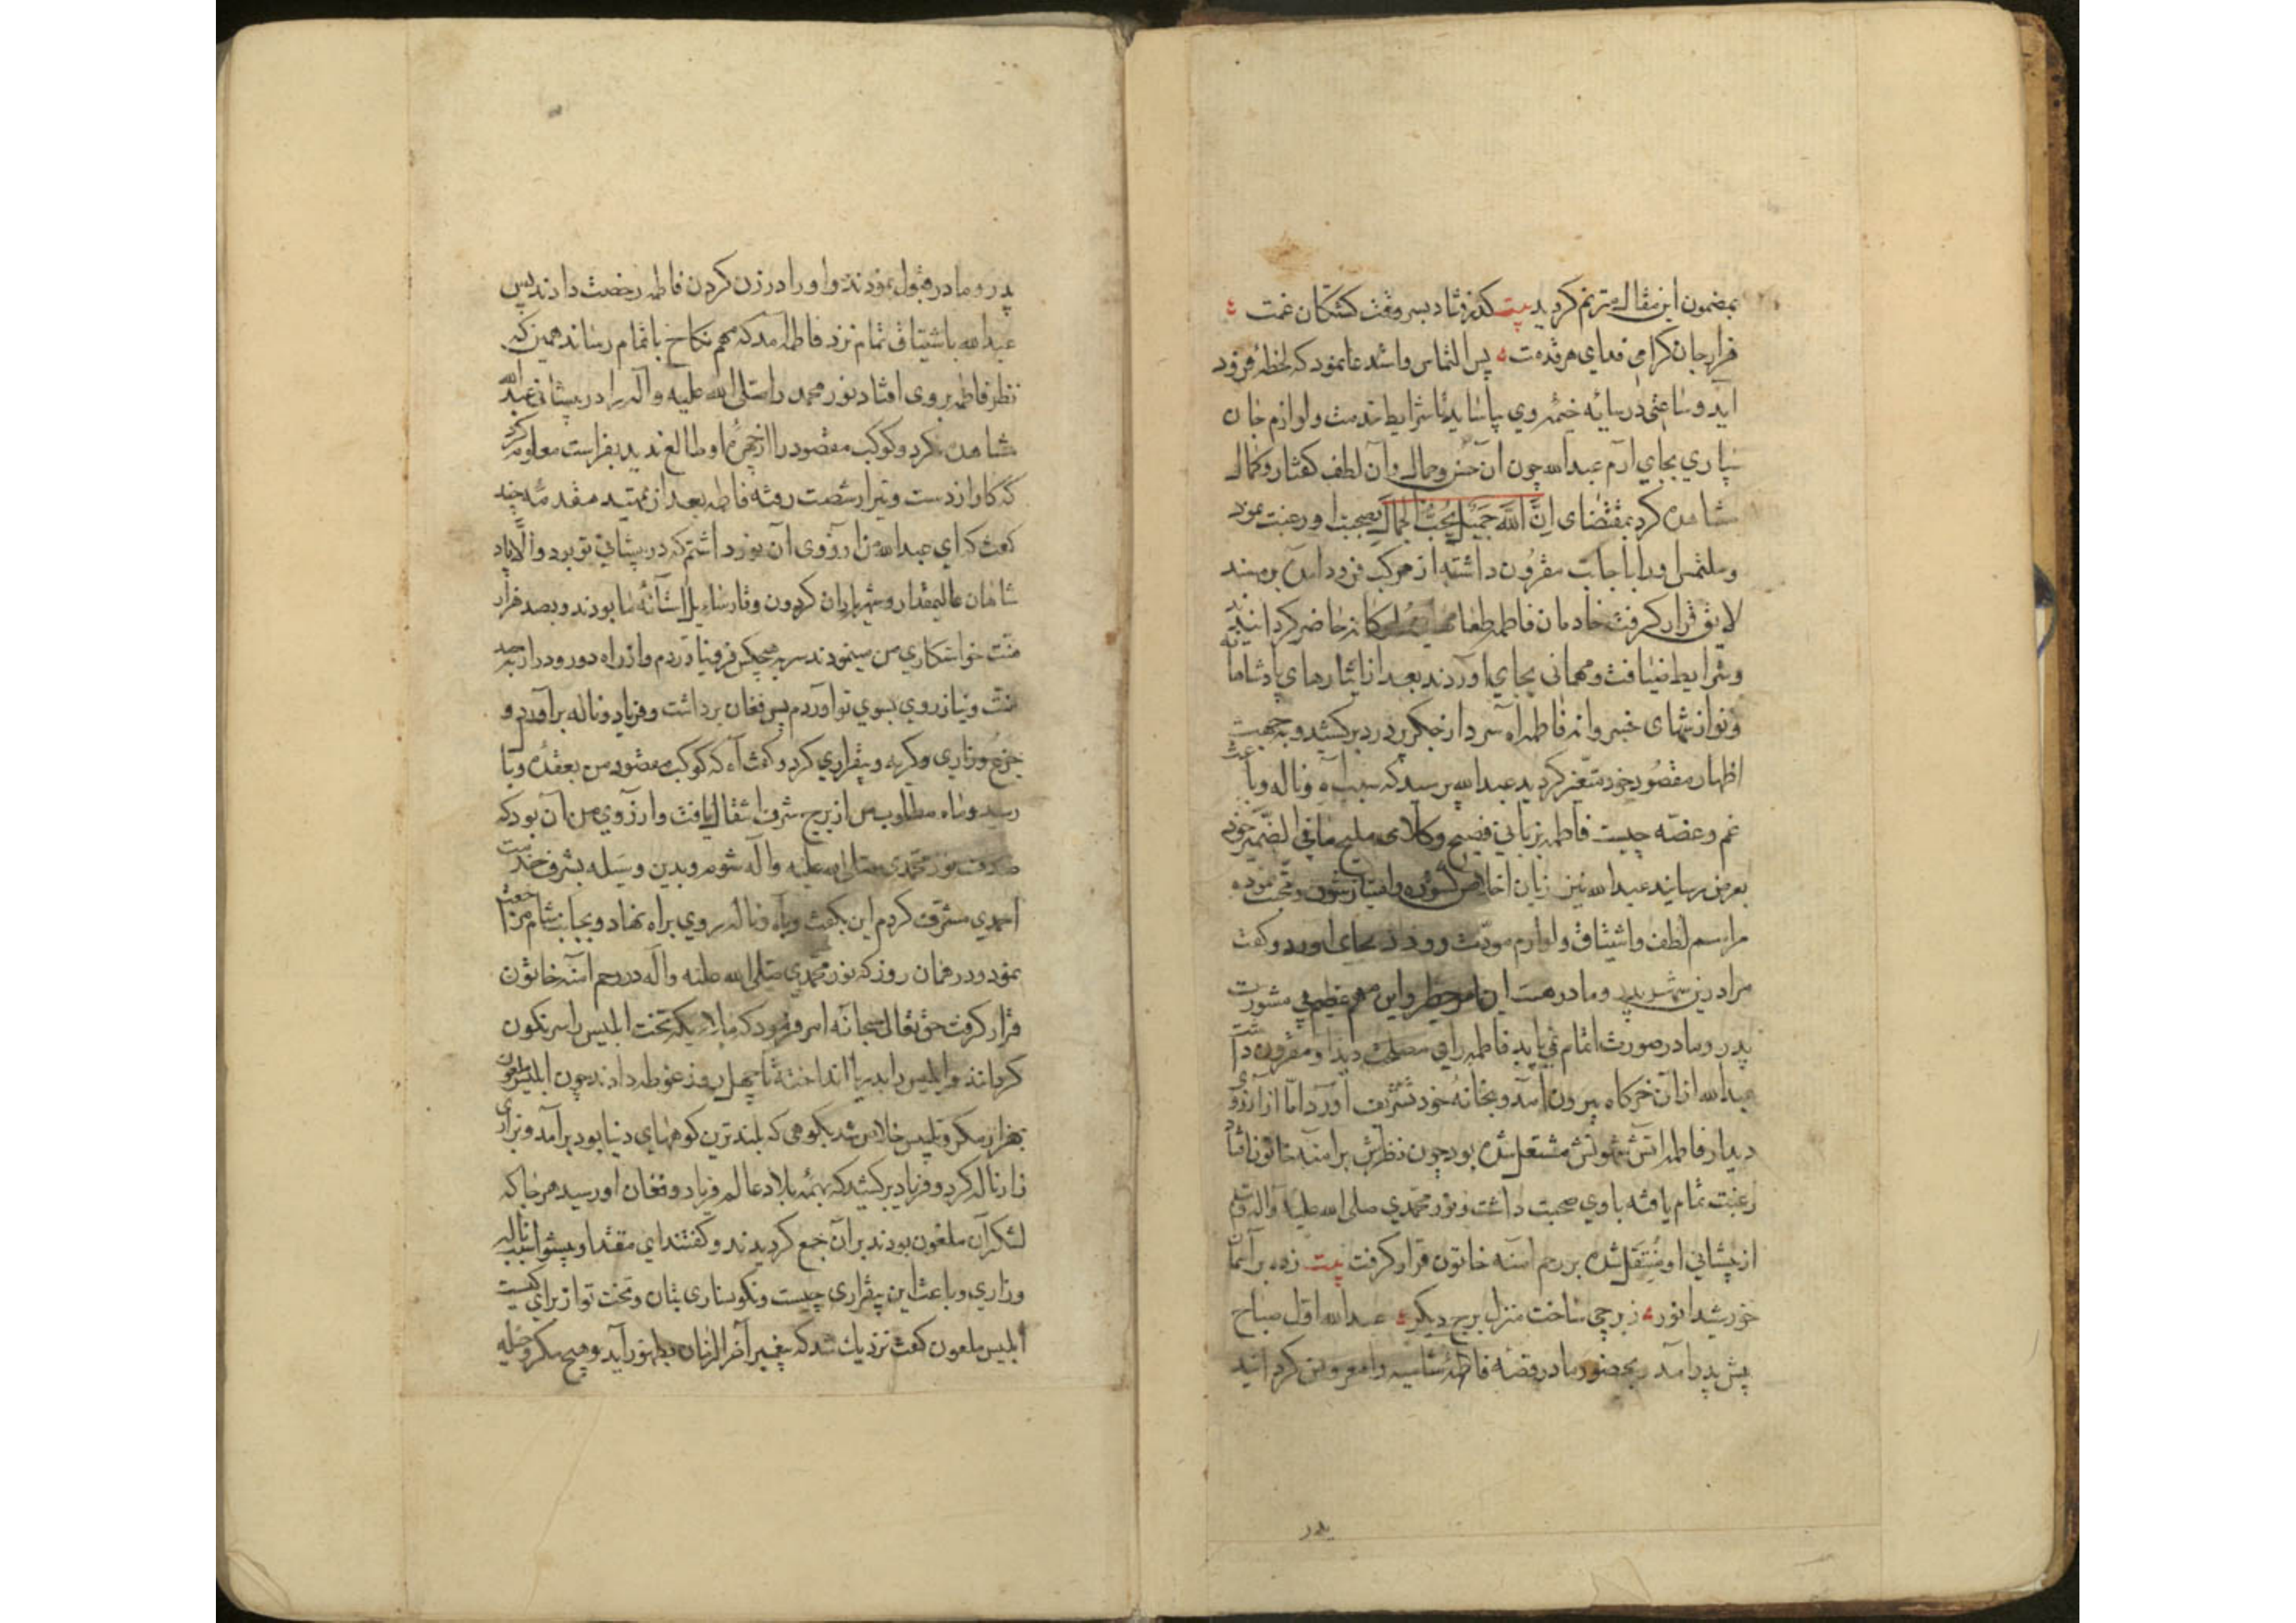 بمضمون این مقاله مترنم گردید بیت گذر فتاد بسر وقت کشتگان غمت
هزار جان گرامی فدای هر قدمت پس التماس واستدعا نمود که لحظهٔ فرود
آید وساعتی درسایه خیمهٔ وی بیاساید تا شرایط خدمت ولوازم جان
سپاری بجای آرم عبدالله چون آن حسن وجمال وآن لطف گفتار وکمال
مشاهده کرد بمقتضای اِنَّ اللهَ جَمیلٌ یُحِبُّ الجَمالَ بصحبت او رغبت نمود
وملتمس اورا باجابت مقرون داشته از مرکب فرود آمده بر مسند
لایق قرار گرفت خادمان فاطمه طعامهای ملوکانه حاضر گردانیدند
وشرایط ضیافت ومهمانی بجای آوردند بعد از ایثارهای پادشاهانه
ونوازشهای خسروانه فاطمه آه سرد از جگر پر درد برکشید وبه جهت
اظهار مقصود خود متغیر گردید عبدالله پرسید که سبب آه وناله وباعث
غم وغصه چیست فاطمه بزبانی فصیح وکلامی ملیح مافی الضمیر خود
بعرض رسانید عبدالله نیز زبان اخلاص گشوده واستیاز شوق ومحبت نموده
مراسم لطف واشتیاق ولوازم مودت ووداد بجای آورد وگفت
مرا درین شهر پدر ومادر هست این امر خطیر واین مهم عظیم بی مشورت
پدر ومادر صورت اتمام نمی یابد فاطمه رای مصلحت دید او مقرون داشت
عبدالله ازآن خرگاه بیرون آمد وبخانهٔ خود تشریف آورد اما از آرزوی
دیدار فاطمه آتش شهوتش مشتعل شده بود چون نظرش بر آمنه خاتون افتاد
رغبت تمام یافته باوی صحبت داشت ونور محمدی صلی الله علیه وآله وسلم
از پیشانی او منتقل شده بر رحم آمنه خاتون قرار گرفت بیت زده بر آسمان
خورشید انور ز برجی ساخت منزل برج دیگر عبدالله اول صباح
پیش پدر آمد بحضور مادر قصهٔ فاطمهٔ شامیه را معروض گردانید
پدر
پدر ومادر قبول نمودند واورا در زن کردن فاطمه رخصت دادند پس
عبدالله باشتیاق تمام نزد فاطمه آمد که مهم نکاح باتمام رساند همین که
نظر فاطمه بروی افتاد نور محمد را صلی الله علیه وآله را در پیشانی عبدالله
مشاهده نکرد وکوکب مقصود را از چهرهٔ او طالع ندید بفراست معلوم کرد
که کار از دست وتیر از شصت رفته فاطمه بعد از تمهید مقدمهٔ چند
گفت که ای عبدالله من آرزوی آن نور داشتم که در پیشانی تو بود والا یاد
شاهان عالیمقدار وشهریاران گردون وقار سایل آستانهٔ ما بودند وبصد هزار
منت خواستگاری من مینمودند سر بهیچکس فرو نیاوردم واز راه دور ودراز بصد
منت ونیاز روی بسوی تو آوردم پس فغان برداشت وفریاد وناله برآورد و
جزع وزاری وگریه وبیقراری کرد وگفت آه که کوکب مقصود من بعقدهٔ وبا
رسید وماه مطلوب من از برج شرف انتقال یافت وآرزوی من آن بود که
صدف نور محمدی صلی الله علیه وآله شوم وبدین وسیله بشرف خدمت
احمدی مشرف گردم این بگفت وبآه وناله روی براه نهاد وبجانب شام مراجعت
نمود ودر همان روز که نور محمدی صلی الله علیه وآله در رحم آمنه خاتون
قرار گرفت حق تعالی سبحانه امر فرمود که ملایکه تخت ابلیس را سرنگون
کردند وابلیس را بدریا انداخته تا چهل روز غوطه دادند چون ابلیس ملعون
بهزار مکر وتلبیس خلاص شد بکوهی که بلندترین کوههای دنیا بود برآمد وبزاری
زار ناله کرد وفریاد برکشید که بهمهٔ بلاد عالم فریاد وفغان او رسید هر جا که
لشکر آن ملعون بودند بر آن جمع گردیدند وگفتند ای مقتدا وپیشوا سبب ناله
وزاری وباعث این بیقراری چیست ونگونساری بتان وتخت تو از برای کیست
ابلیس ملعون گفت نزدیک شد که پیغمبر آخر الزمان بظهور آید وهیچ مکر وحیله